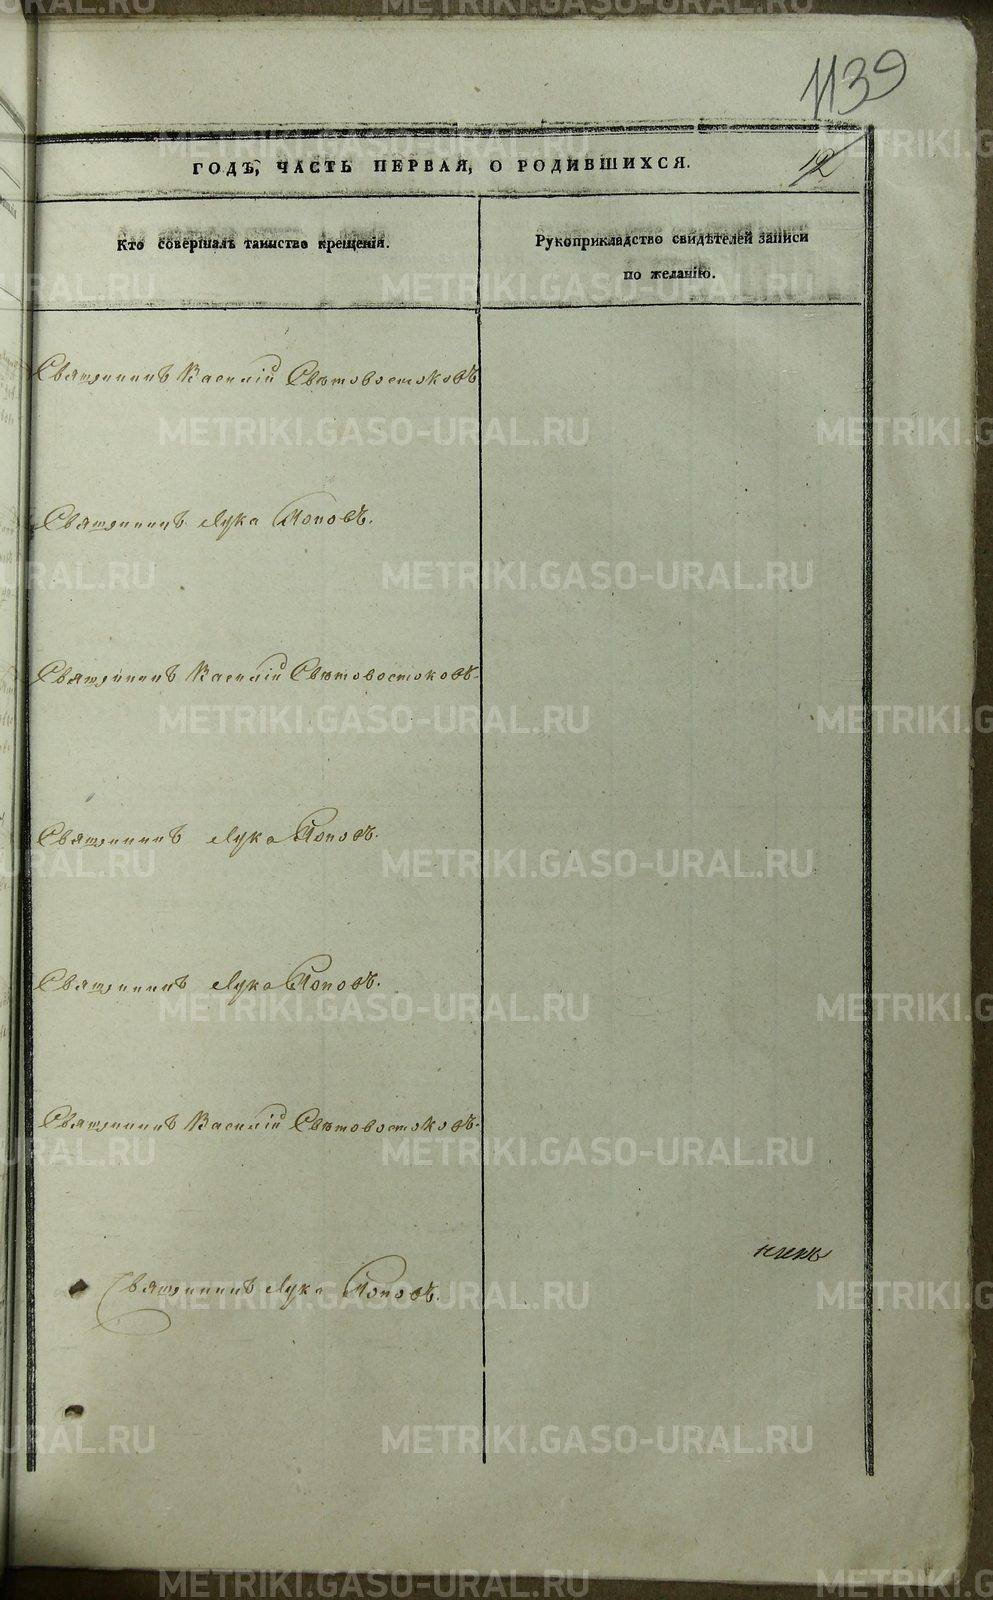 1139
ГОДЪ, ЧАСТЬ ПЕРВАЯ, О РОДИВШИХСЯ.
12
Кто совершалъ таинство крещенія.
Рукоприкладство свидѣтелей записи
по желанію.
Священникъ Василій Свѣтовостоковъ
Священникъ Лука Поповъ.
Священникъ Василій Свѣтовостоковъ.
Священникъ Лука Поповъ.
Священникъ Лука Поповъ.
Священникъ Василій Свѣтовостоковъ.
Священникъ Лука Поповъ.
METRIKI.GASO-URAL.RU